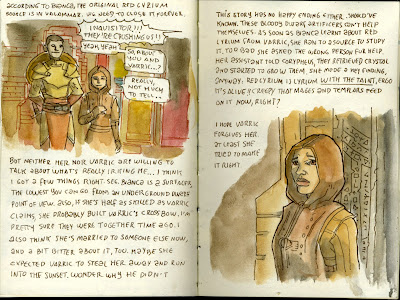 ACCORDING TO BIANCA, THE ORIGINAL RED LYRIUM
SOURCE IS IN VALAMMAR. WE NEED TO CLOSE IT FOREVER.
INQUISITOR!!!
THEY'RE CRUSHING US!!!
YEAH, YEAH
SO, ABOUT
YOU AND
VARRIC...?
REALLY,
NOT MUCH
TO TELL...
BUT NEITHER HER NOR VARRIC ARE WILLING TO
TALK ABOUT WHAT'S REALLY IRKING ME... I THINK
I GOT A FEW THINGS RIGHT. SEE, BIANCA IS A SURFACER,
THE LOWEST YOU CAN GO FROM AN UNDERGROUND DWARF
POINT OF VIEW. ALSO, IF SHE'S HALF AS SKILLED AS VARRIC
CLAIMS, SHE PROBABLY BUILT VARRIC'S CROSSBOW. I'M
PRETTY SURE THEY WERE TOGETHER TIME AGO. I
ALSO THINK SHE'S MARRIED TO SOMEONE ELSE NOW,
AND A BIT BITTER ABOUT IT, TOO. MAYBE SHE
EXPECTED VARRIC TO STEAL HER AWAY AND RUN
INTO THE SUNSET. WONDER WHY HE DIDN'T
THIS STORY HAS NO HAPPY ENDING EITHER. SHOULD'VE
KNOWN. THESE BLOODY DWARF ARTIFICERS CAN'T HELP
THEMSELVES. AS SOON AS BIANCA LEARNT ABOUT RED
LYRIUM FROM VARRIC, SHE RAN TO A SOURCE TO STUDY
IT. TOO BAD SHE ASKED THE WRONG PERSON FOR HELP.
HER ASSISTANT TOLD CORYPHEUS, THEY RETRIEVED CRYSTAL
AND STARTED TO GROW THEM. SHE MADE A KEY FINDING,
THOUGH: RED LYRIUM IS LYRIUM WITH THE TAINT, ERGO
IT'S ALIVE. CREEPY THAT MAGES AND TEMPLARS FEED
ON IT NOW, RIGHT?
I HOPE VARRIC
FORGIVES HER.
AT LEAST SHE
TRIED TO MAKE
IT RIGHT.